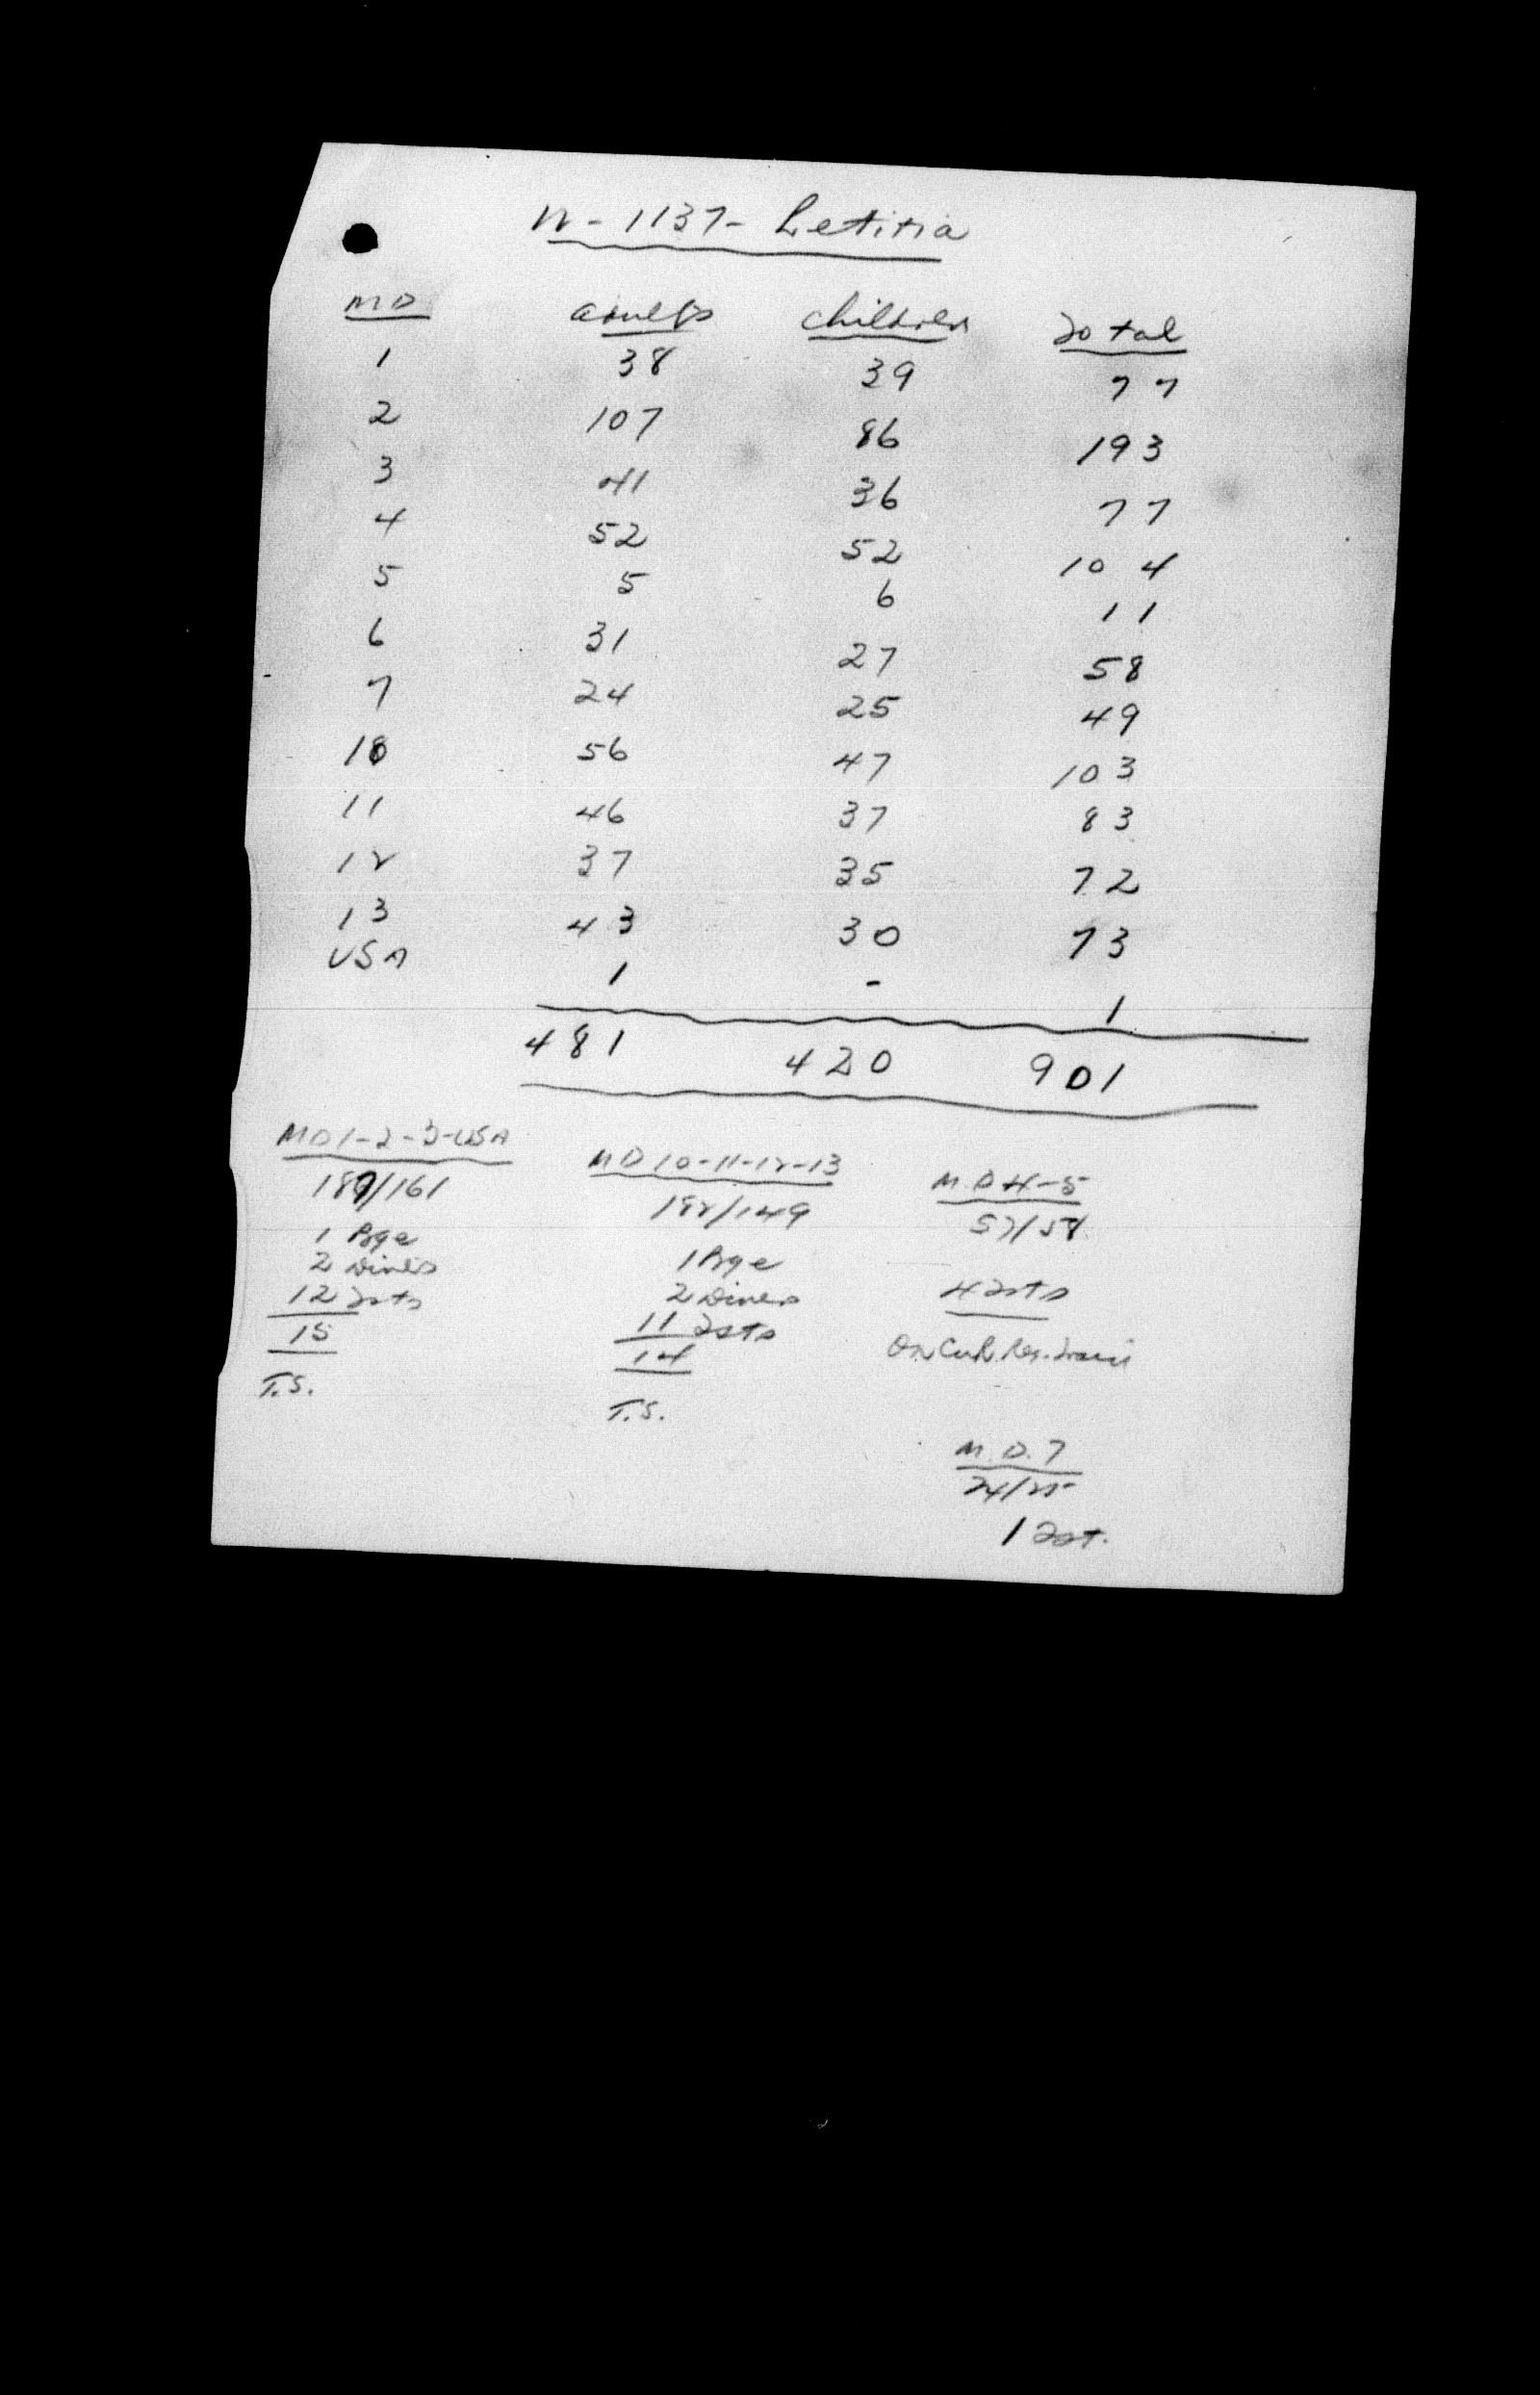 W-1137- Letitia
MD adults children Total
1 38 39 77
2 107 86 193
3 41 36 77
4 52 52 104
5 5 6 11
6 31 27 58
7 24 25 49
10 56 47 103
11 46 37 83
12 37 35 72
13 43 30 73
USA 1 - 1
481 420 901
MD 1-2-3-USA
187/161
1 Bge
2 Diners
12 Tsts
15
T.S.
MD 10-11-12-13
182/149
1 Bge
2 Diners
11 Tsts
14
T.S.
M.D 4-5
57/58
4 Tsts
On Reg. Train
M.D. 7
24/25
1 Tst.